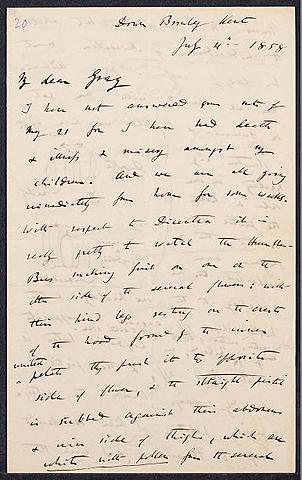 20
Down Bromley Kent
July 4th. 1858
My dear Gray
I have not answered your note of
May 21 for I have had death
& illness & misery amongst my
children. And we are all going
immediately from home for some weeks.
With respect to Dicentra it is
really pretty to watch the Humble-
Bees sucking first on one & the
other side of the several flowers; with
their hind legs resting on the crests
of the hood formed by the inner
united
petals they push it to opposite
side of flower, & the straight pistil
is rubbed against their abdomens
& inner side of thighs, which are
white with pollen from the several